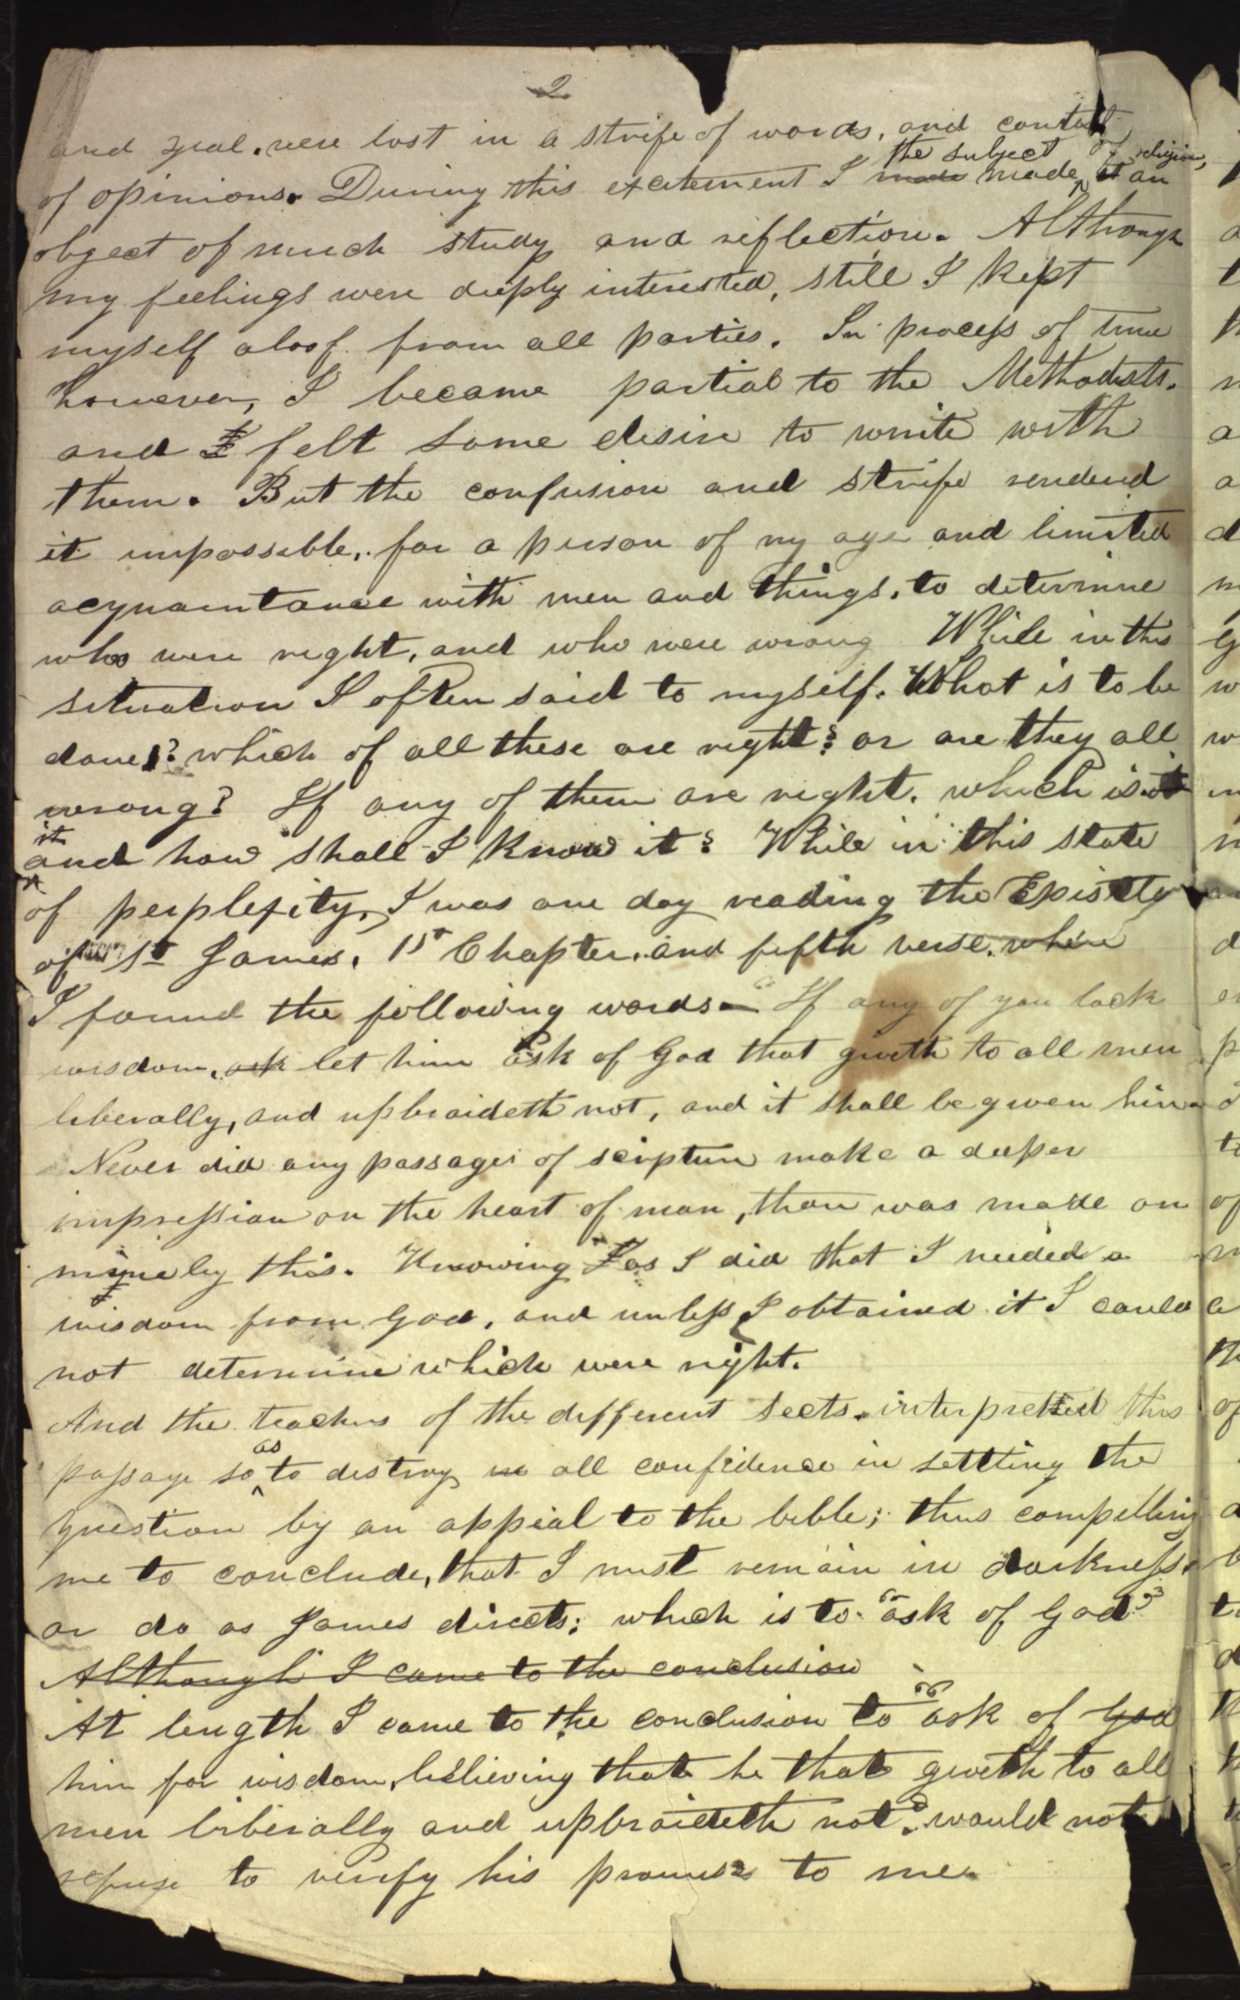 2
and zeal, were lost in a strife of words, and contest
of opinions. During this excitement I made made the subject of religion, it an
object of much study and reflection. Although
my feelings were deeply interested, still I kept
myself aloof from all parties. In process of time
however, I became partial to the Methodists.
and I felt some desire to unite with
them. But the confusion and strife renderd
it impossible, for a person of my age and limited
acquaintance with men and things, to determine
who were right, and who were wrong While in this
situation I often said to myself. What is to be
done? which of all these are right? or are they all
wrong? If any of them are right, which is it
it and how shall I know it? While in this state
of perplexity, I was one day reading the Epistle
of St James, 1st Chapter, and fifth verse, where
I found the following words— "If any of you lack
wisdom, ask let him ask of God that giveth to all men
liberally, and upbraideth not, and it shall be given him
Never did any passage of scripture make a deeper
impression on the heart of man, than was made on
mine by this. Knowing I as I did that I needed a
wisdom from God, and unless I obtained it I could
not determine which were right.
And the teachers of the different sects, interpreted this
passage so as to destroy in all confidence in settling the
question by an appeal to the bible; thus compelling
me to conclude, that I must remain in darkness,
or do as James directs; which is to "ask of God"
Although I came to the conclusion
At length I came to the conclusion to "ask of God
him for wisdom, believing that he that giveth to all
men liberally and upbraideth not, would not
refuse to verify his promises to me.